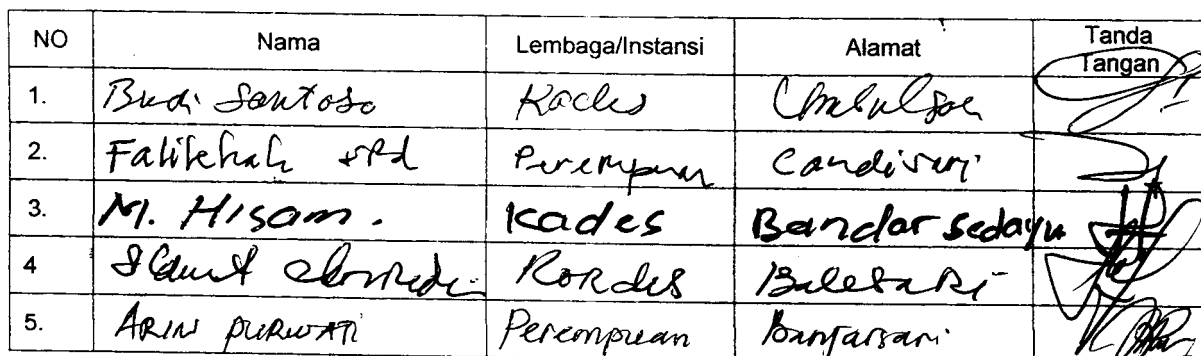 NO Nama Lembaga/Instansi Alamat Tanda Tangan
1. Budi Santoso Kades
2. Falikhah SPd Perempuan Candisari
3. M. Hisam. Kades Bandar sedayu
4 Balesari
5. ARIN PURWATI Perempuan Banjarsari